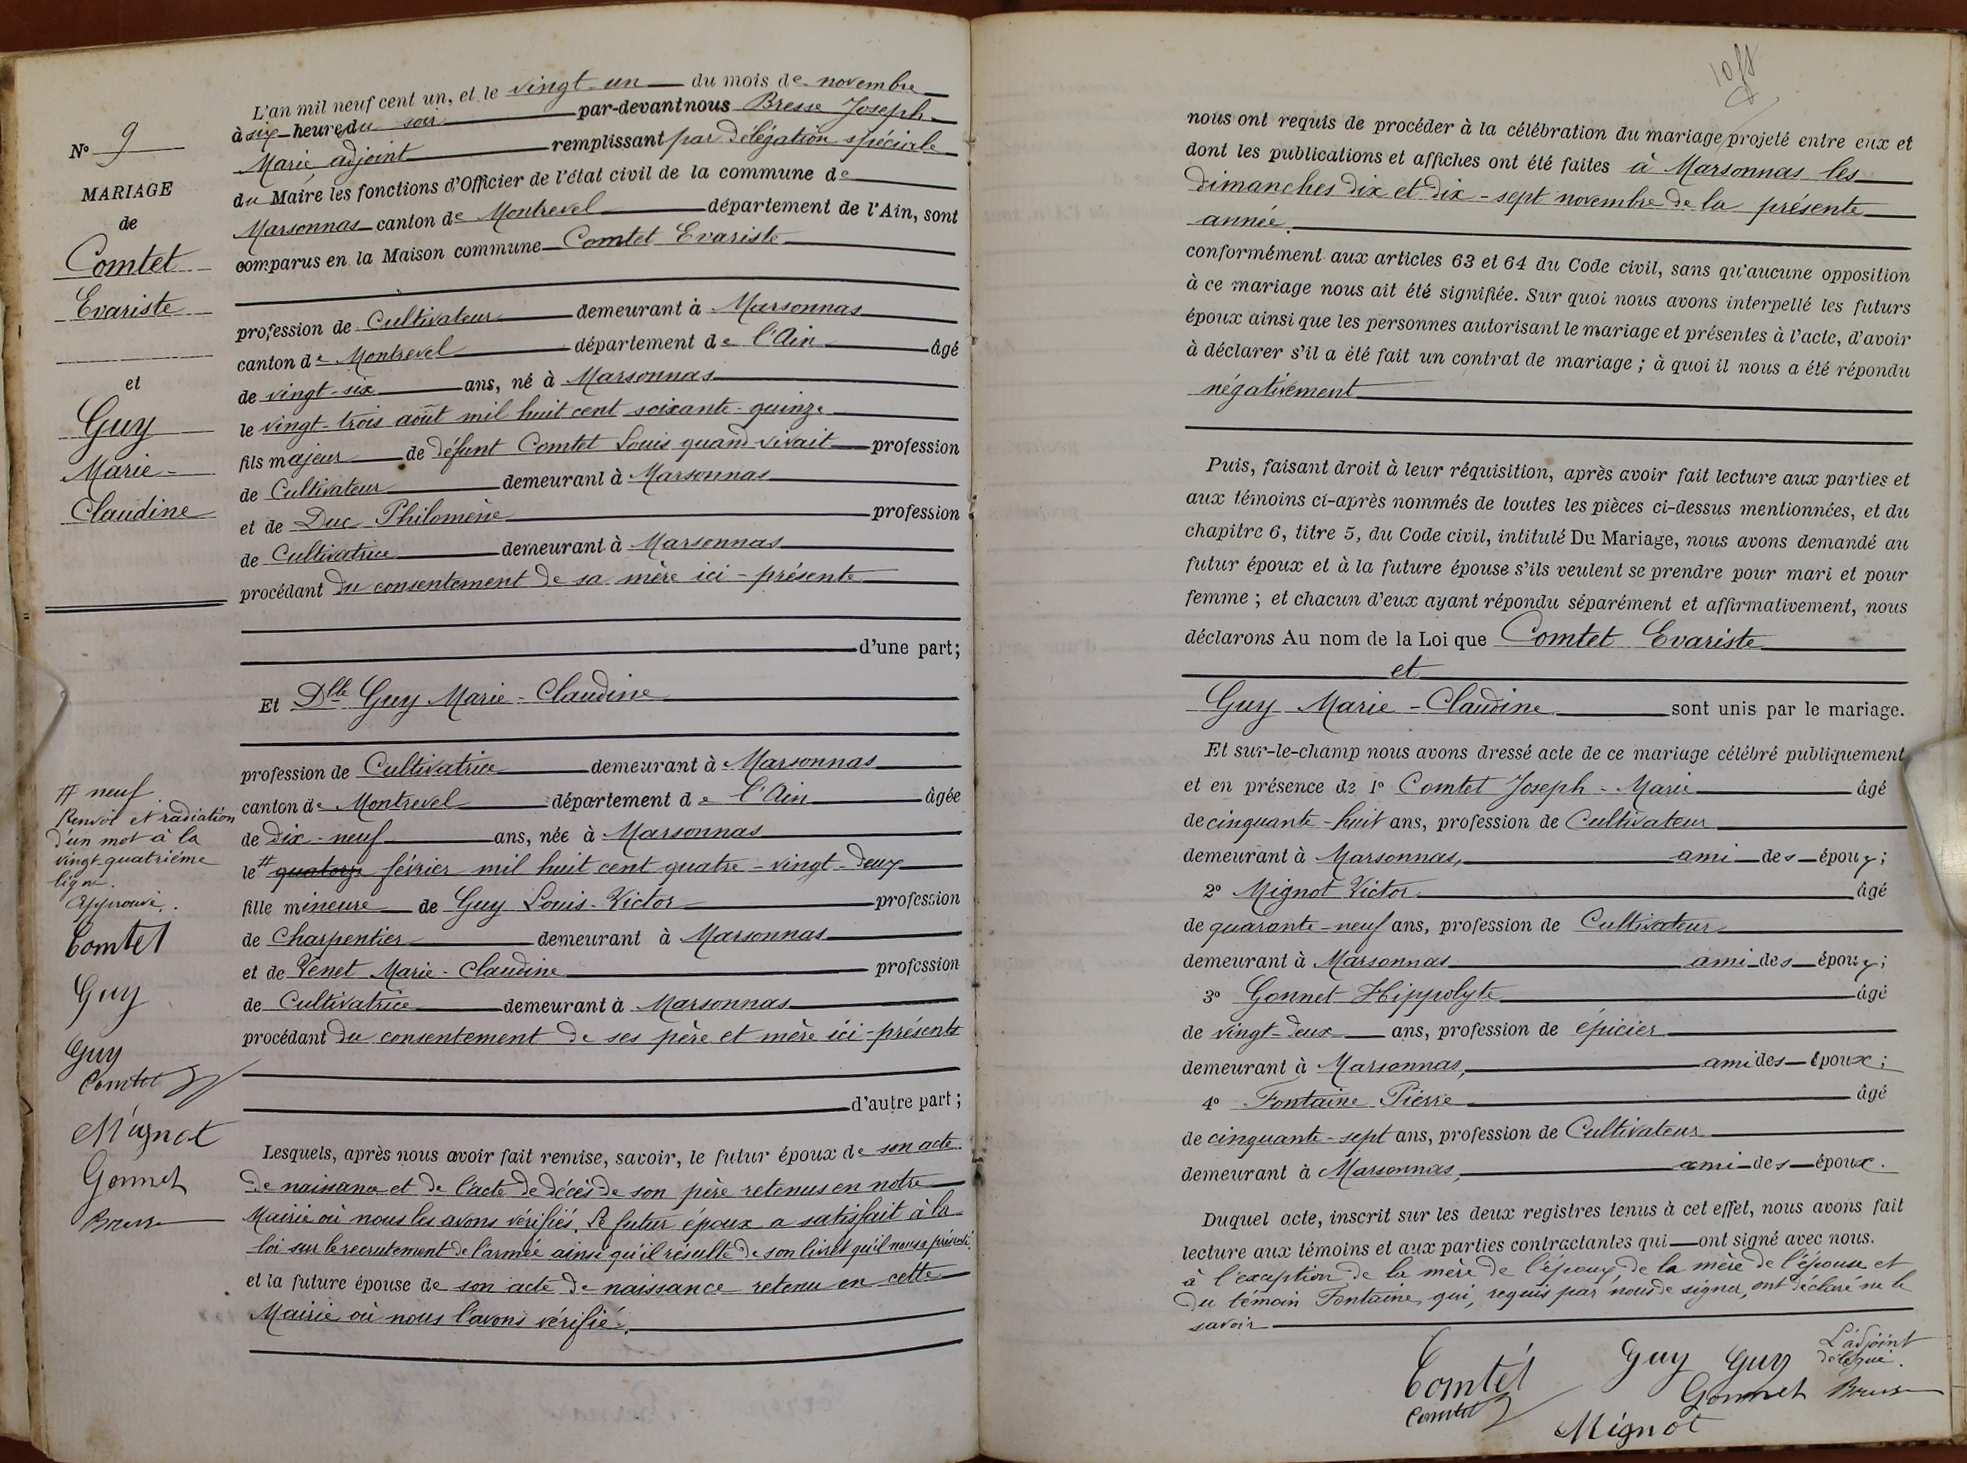 N° 9
MARIAGE
de
Comtet
Evariste
et
Guy
Marie-
Claudine
# neuf
Renvoi et radiation
d'un mot à la
vingt quatrième
ligne.
Approuvé.
Comtet
Guy
Guy
Comtet
Mignot
Gonnet
Bresse
L'an mil neuf cent un, et le vingt-un du mois de novembre
à six heures du soir par-devant nous Bresse Joseph-
Marie adjoint remplissant par délégation spéciale
du Maire les fonctions d'Officier de l'état civil de la commune de
Marsonnas canton de Montrevel département de l'Ain, sont
comparus en la Maison commune Comtet Evariste
profession de Cultivateur demeurant à Marsonnas
canton de Montrevel département de l'Ain âgé
de vingt-six ans, né à Marsonnas
le vingt-trois août mil huit cent soixante-quinze
fils majeur de défunt Comtet Louis quand vivait profession
de Cultivateur demeurant à Marsonnas
et de Duc Philomène profession
de Cultivatrice demeurant à Marsonnas
procédant du consentement de sa mère ici-présente
d'une part;
Et Dlle Guy Marie-Claudine
profession de Cultivatrice demeurant à Marsonnas
canton de Montrevel département de l'Ain âgée
de dix-neuf ans, née à Marsonnas
le # quatorze février mil huit cent quatre-vingt-deux
fille mineure de Guy Louis-Victor profession
de Charpentier demeurant à Marsonnas
et de Venet Marie-Claudine profession
de Cultivatrice demeurant à Marsonnas
procédant du consentement de ses père et mère ici-présents
d'autre part;
Lesquels, après nous avoir fait remise, savoir, le futur époux de son acte
de naissance et de l'acte de décès de son père retenus en notre
Mairie où nous les avons vérifiés. Le futur époux a satisfait à la
loi sur le recrutement de l'armée ainsi qu'il résulte de son livret qu'il nous a présenté.
et la future épouse de son acte de naissance retenu en cette
Mairie où nous l'avons vérifié.
nous ont requis de procéder à la célébration du mariage projeté entre eux et
dont les publications et affiches ont été faites à Marsonnas les
dimanches dix et dix-sept novembre de la présente
année.
conformément aux articles 63 et 64 du Code civil, sans qu'aucune opposition
à ce mariage nous ait été signifiée. Sur quoi nous avons interpellé les futurs
époux ainsi que les personnes autorisant le mariage et présentes à l'acte, d'avoir
à déclarer s'il a été fait un contrat de mariage; à quoi il nous a été répondu
négativement
Puis, faisant droit à leur réquisition, après avoir fait lecture aux parties et
aux témoins ci-après nommés de toutes les pièces ci-dessus mentionnées, et du
chapitre 6, titre 5, du Code civil, intitulé Du Mariage, nous avons demandé au
futur époux et à la future épouse s'ils veulent se prendre pour mari et pour
femme; et chacun d'eux ayant répondu séparément et affirmativement, nous
déclarons Au nom de la Loi que Comtet Evariste
et
Guy Marie-Claudine sont unis par le mariage.
Et sur-le-champ nous avons dressé acte de ce mariage célébré publiquement
et en présence de 1° Comtet Joseph-Marie âgé
de cinquante-huit ans, profession de Cultivateur
demeurant à Marsonnas, ami des époux;
2° Mignot Victor âgé
de quarante-neuf ans, profession de Cultivateur
demeurant à Marsonnas ami des époux;
3° Gonnet Hippolyte âgé
de vingt-deux ans, profession de épicier
demeurant à Marsonnas, ami des époux;
4° Fontaine Pierre âgé
de cinquante-sept ans, profession de Cultivateur
demeurant à Marsonnas, ami des époux.
Duquel acte, inscrit sur les deux registres tenus à cet effet, nous avons fait
lecture aux témoins et aux parties contractantes qui ont signé avec nous.
à l'exception de la mère de l'époux, de la mère de l'épouse et
du témoin Fontaine, qui, requis par nous de signer, ont déclaré ne le
savoir
Comtet Guy Guy L'adjoint
délégué.
Comtet Gonnet Bresse
Mignot